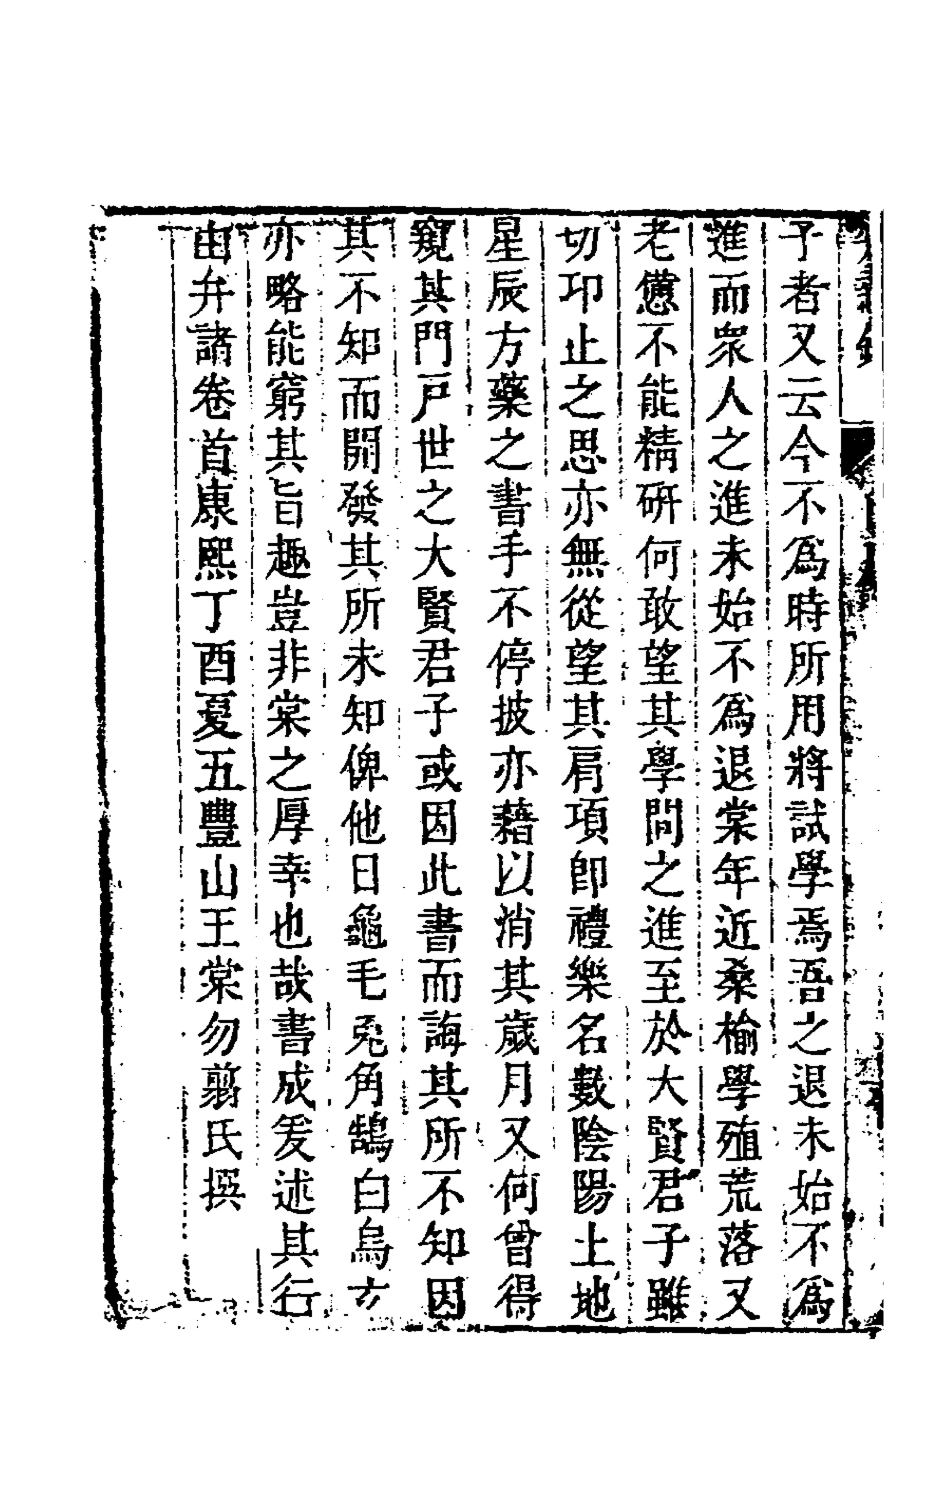 子者又云今不爲時所用將試學焉吾之退未始不爲
進而衆人之進未始不爲退棠年近桑榆學殖荒落又
老憊不能精硏何敢望其學問之進至於大賢君子雖
切卬止之思亦無從望其肩項卽禮樂名數陰陽土地
星辰方藥之書手不停披亦藉以消其歲月又何曾得
窺其門戸世之大賢君子或因此書而誨其所不知因
其不知而開發其所未知俾他日龜毛兎角鵠白烏𤣥
亦略能窮其旨趣豈非棠之厚幸也哉書成爰述其行
由弁諸卷首康熙丁酉夏五豐山王棠勿翦氏撰